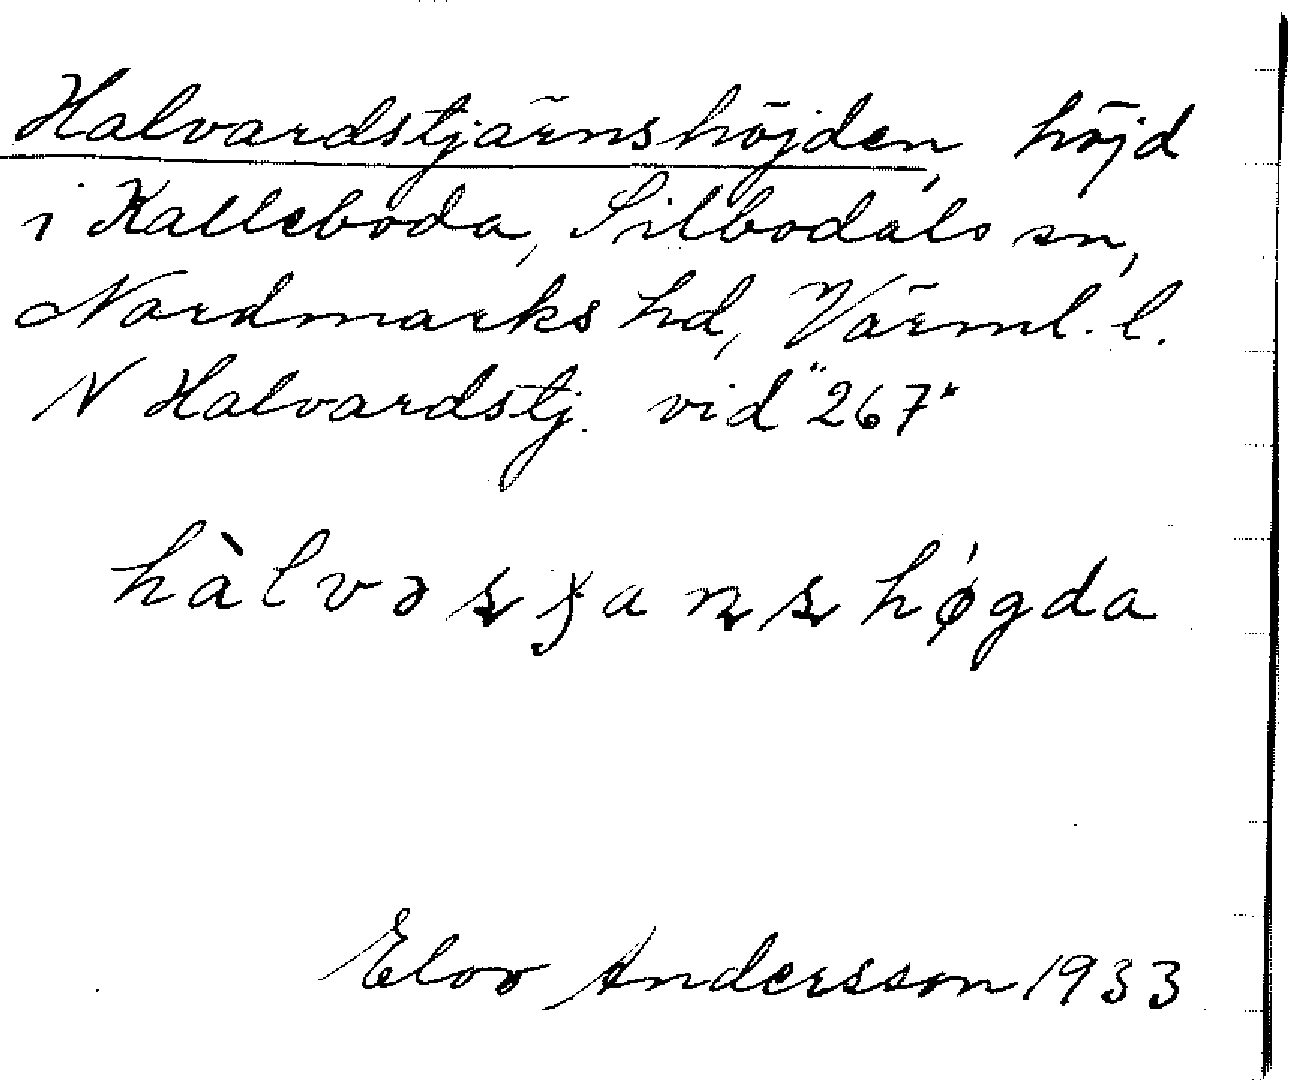 Halvardstjärnshöjden, höjd
i Kalleboda, Silbodals sn,
Nordmarks hd, Värml. l.
N Halvardstj. vid "267"
hàlvəʂʂanʂhǿgda
Elov Andersson 1933